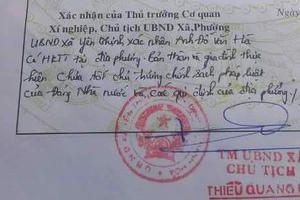 Xác nhận của Thủ trưởng Cơ quan
Xí nghiệp, Chủ tịch UBND Xã, Phường
UBND xã Yên Thịnh xác nhận Anh Đỗ Văn Hà
Có HKTT tại địa phương bản thân và gia đình thực
hiện Chưa tốt chủ trương chính sách pháp luật
của Đảng Nhà nước và các quy định của địa phương
TM UBND XÃ
CHỦ TỊCH
THIỀU QUANG